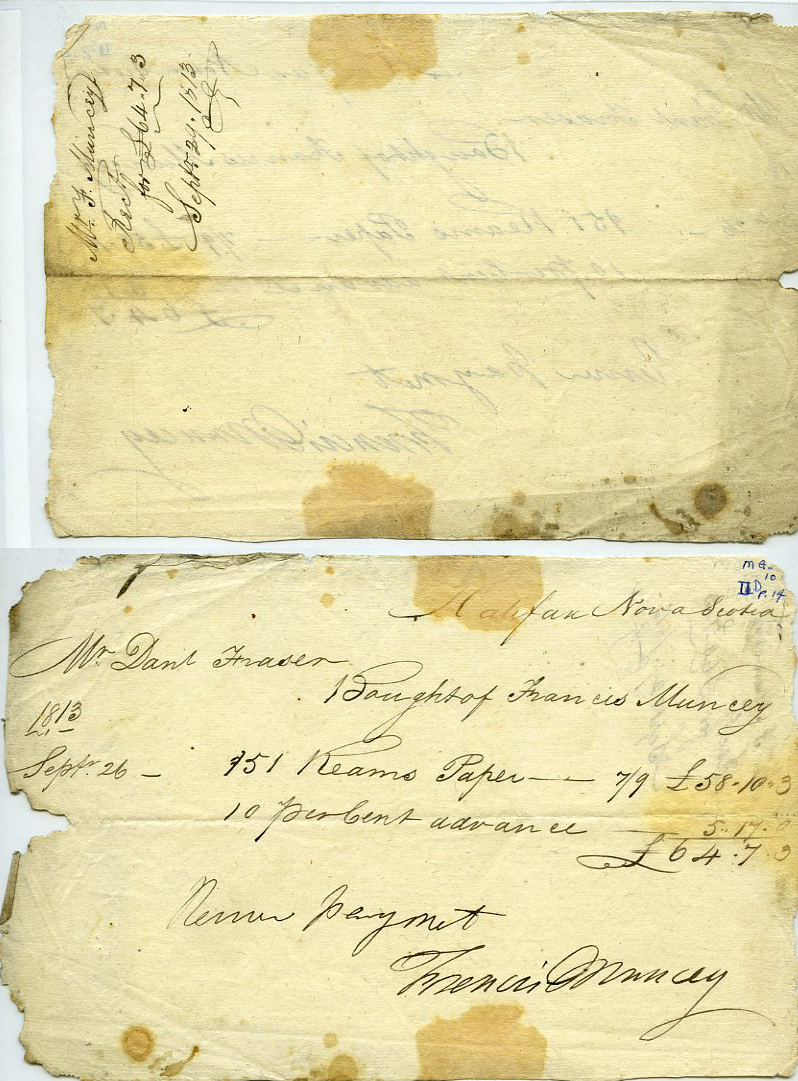 Mr. F. Muncey
Rect.
for £64.7.3
Septr. 29. 1813.
MG-
10
II D p.14
Halifax Nova Scotia
Mr Danl Fraser
Bought of Francis Muncey
1813
Septr. 26 — 151 Reams Paper — — 7/9 £58-10-3
10 per Cent advance — 5..17.0
£64.7.3
paymet
Francis Muncey